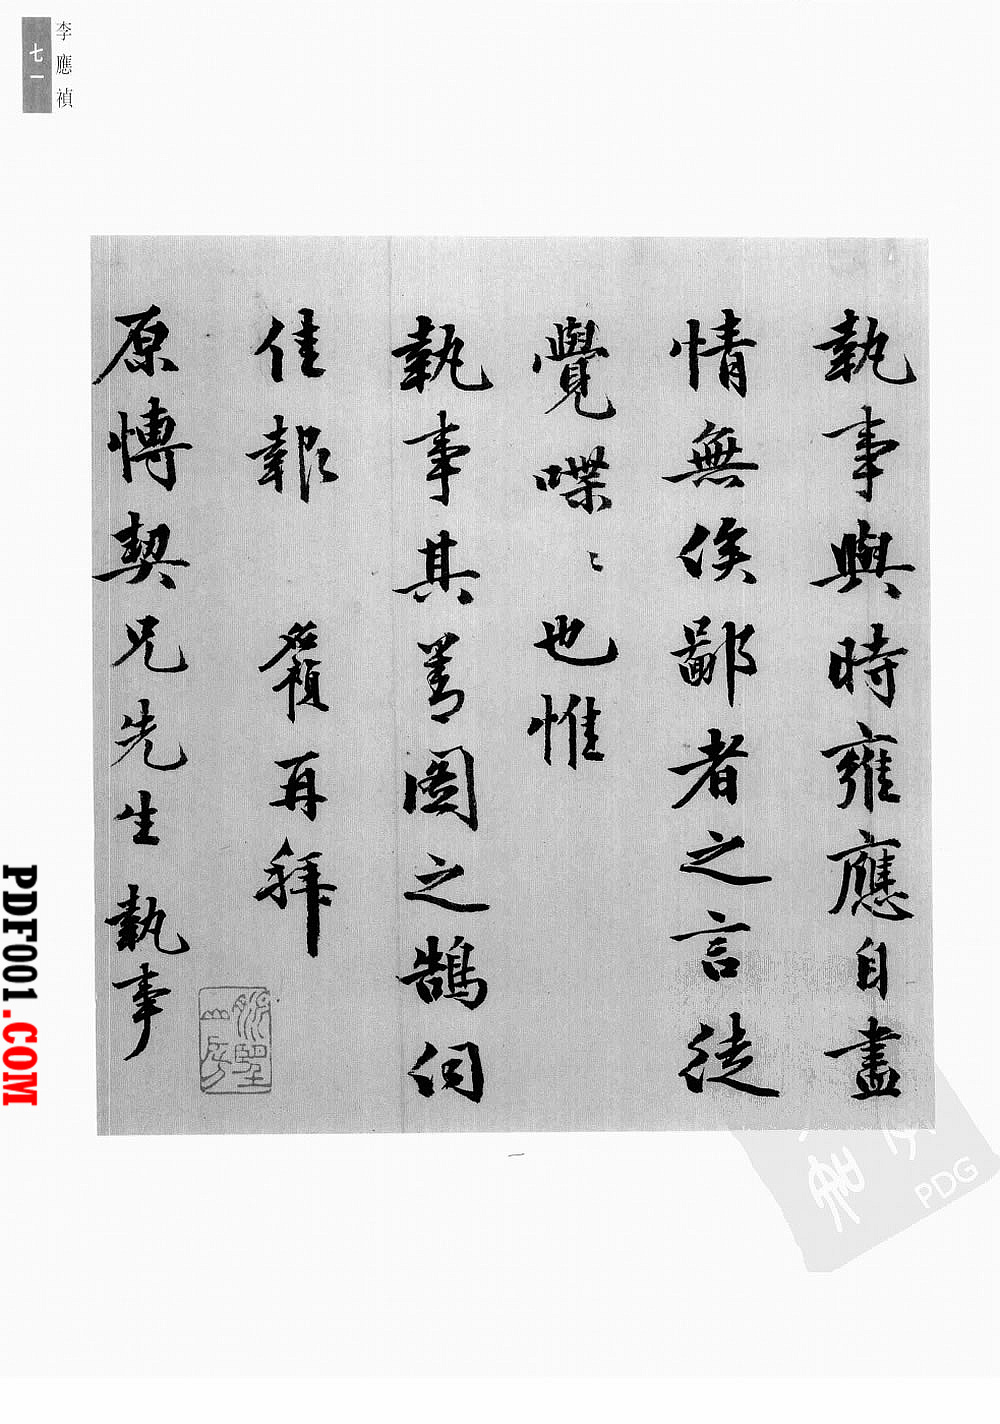 李應禎
七一
執事與時雍應自盡
情無俟鄙者之言徒
覺喋〻也惟
執事其善圖之鵠伺
佳報 應禎再拜
原博契兄先生 執事
一
PDG
PDF001.COM